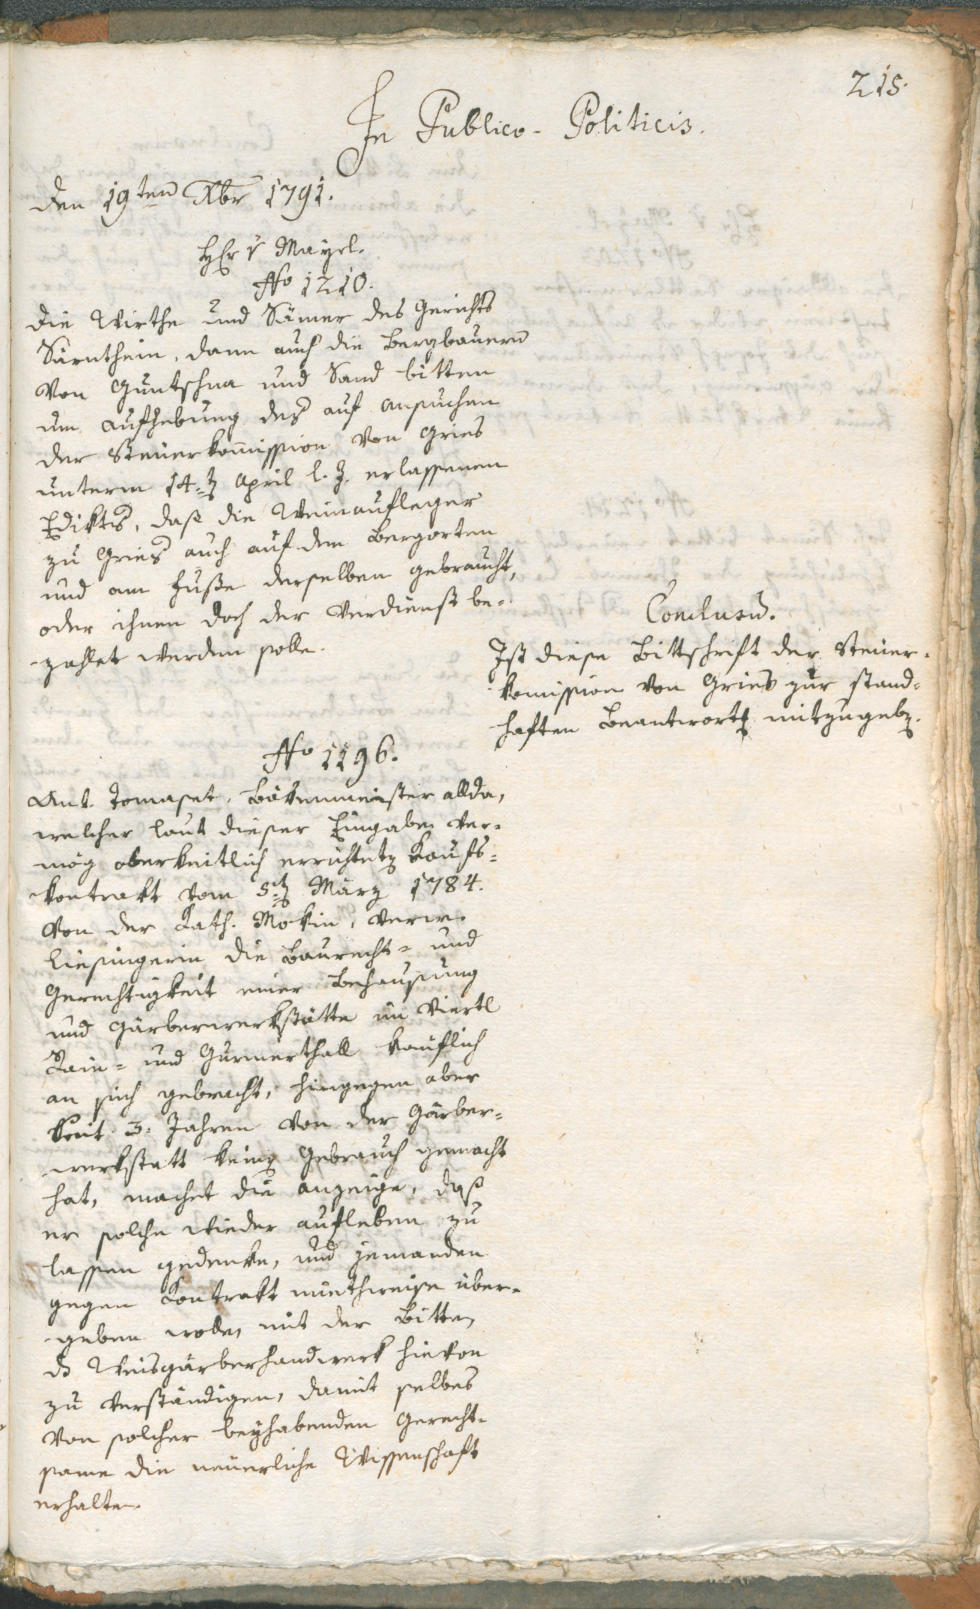 215.
In Publico-Politicis.
den 19ten Xbr 1791.
Hr v Mayrl.
No 1210.
Die Wirthe und Sämer des Gerichts
Särnthein, dann auch die Bergbauern
von Guntschna und Sand bitten
um Aufhebung des auf Ansuchen
der Steuerkom̄ission von Gries
unterm 14.t April l. J. erlassenen
Edikts, daß die Weinaufleger
zu Gries auch auf den Bergorten
und am Fuße derselben gebraucht,
oder ihnen doch der Verdienst be-
zahlet werden solle.
Conclusū.
Ist diese Bittschrift der Steuer-
komission von Gries zur stand-
haften Beantwort mitzugeb.
No 1196.
Ant. Tomaset, Bäkenmeister allda,
welcher laut dieser Eingabe ver-
mög oberkeitlich errichtet Kaufs-
kontrakt vom 5.t März 1784.
von der Kath. Mokin, verw.
Liesingerin die Baurecht- und
Gerechtigkeit einer Behausung
und Gärberwerkstätte im Viertl
Rain- und Gurmerthall käuflich
an sich gebracht, hingegen aber
seit 3. Jahren von der Gärber-
werkstatt kein Gebrauch gemacht
hat, machet die Anzeige, daß
er solche wieder aufleben zu
lassen gedenke, und jemanden
gegen Kontrakt miethweise über-
geben wolle, mit der Bitte,
d Weisgärberhandwerk hievon
zu verständigen, damit selbes
von solcher beyhabenden Gerecht-
same die neuerliche Wissenschaft
erhalte.